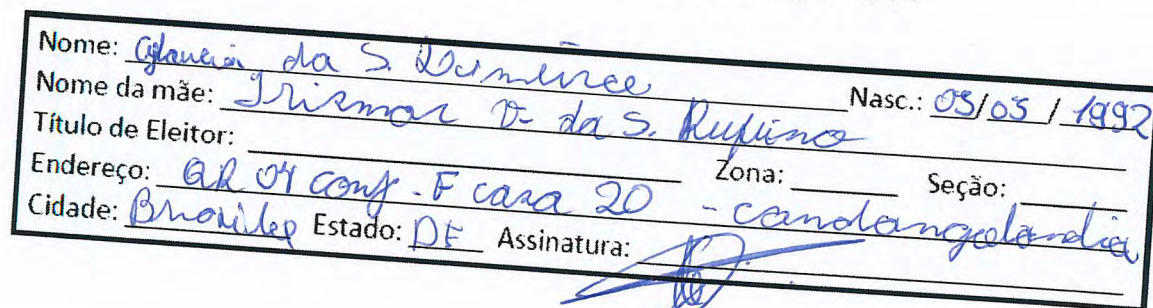 Nome: Glaucia da S. Nasc.: 05/05/1992
Nome da mãe: Irismar V. da S. Rufino
Título de Eleitor: Zona: Seção:
Endereço: QR 04 conj - F casa 20 - candangolandia
Cidade: Brasilia Estado: DF Assinatura: